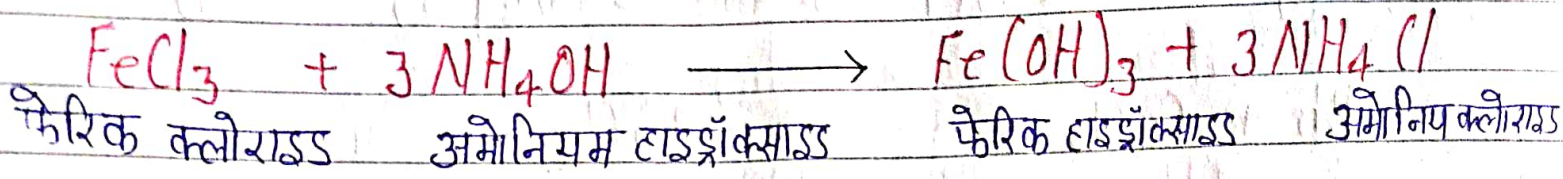 FeCl3 + 3NH4OH ⟶ Fe(OH)3 + 3NH4Cl
फेरिक क्लोराइड अमोनियम हाइड्रॉक्साइड फेरिक हाइड्रॉक्साइड अमोनिय क्लोराइड